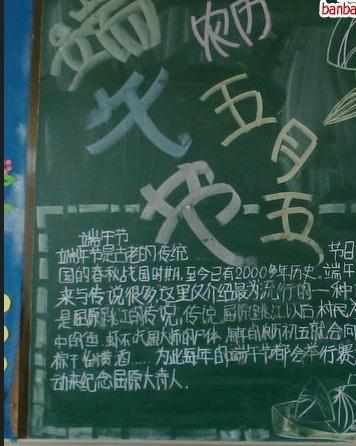 banba
端午节
农历
五月五
端午节
端午节是古老的传统
节日
国的春秋战国时期,至今已有2000多年历史.端午
来与传说很多,这里仅介绍最为流行的一种
是屈原跳江的传说,传说,屈原跳江以后,村民
中的鱼,虾不吃屈大师的尸体,每年的初五就会向
粽子 雄黄酒....为此每年的端午节都会举行赛
动来纪念屈原大诗人.